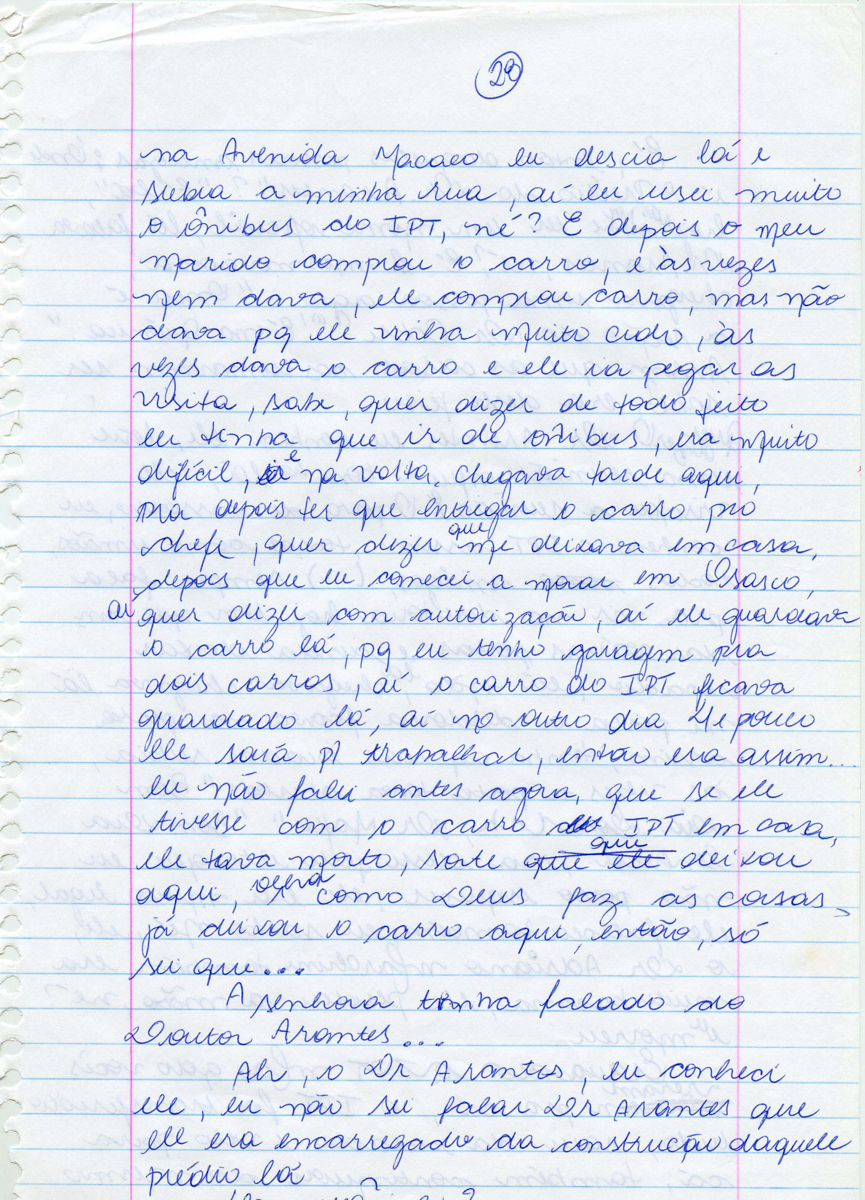 29
na Avenida Macaco eu descia lá e
subia a minha rua, aí eu usei muito
o ônibus do IPT, né? E depois o meu
marido comprou o carro, e às vezes
nem dava, ele comprou carro, mas não
dava pq ele vinha muito cedo, às
vezes dava o carro e ele ia pegar as
visita, sabe, quer dizer de todo jeito
eu tinha que ir de ônibus, era muito
difícil, e na volta. chegava tarde aqui,
pra depois ter que entregar o carro pro
chefe, quer dizer que me deixava em casa,
depois que eu comecei a morar em Osasco,
aí quer dizer com autorização, aí ele guardava
o carro lá, pq eu tenho garagem pra
dois carros, aí o carro do IPT ficava
guardado lá, aí no outro dia
ele saía p/ trabalhar, então era assim...
eu não falei antes agora, que se ele
tivesse com o carro do IPT em casa,
ele tava morto, sabe que ele que deixou
aqui, como Deus faz as coisas,
já deixou o carro aqui, então, só
sei que...
A senhora tinha falado do
Doutor Arantes...
Ah, o Dr Arantes, eu conheci
ele, eu não sei falar Dr Arantes que
ele era encarregado da construção daquele
prédio lá